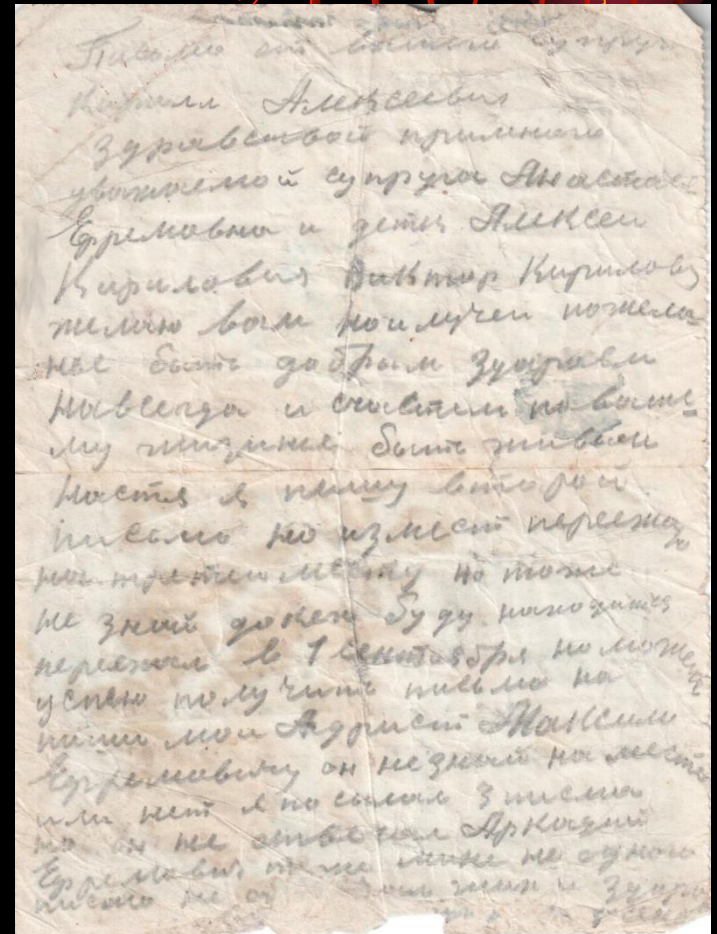 Письмо от вашего супруга
Кирилл Алексеевич
Здравствой примного
уважаемой супруга Анастас
Ефремовна и дети Алексеи
Кириловия Виктор Кирилович
желаю вам наилучеи пожела-
ное быть добрым здаровем
навсегда и счастлим по ваше-
му жизние быть живыи
Настя я пешу второй
письмо но из мест переежаю
на третеи месту но тоже
не знаю докех буду находится
переехал в 1 сентября но можеть
успею получить письмо на
пиши мои Адрисит Максим
Ефремовичу он не знай на месте
или нет я посылал 3 писма
но он не отвечал Аркадий
Ефремовия тоже мине не одною
писмо не жив и здоро